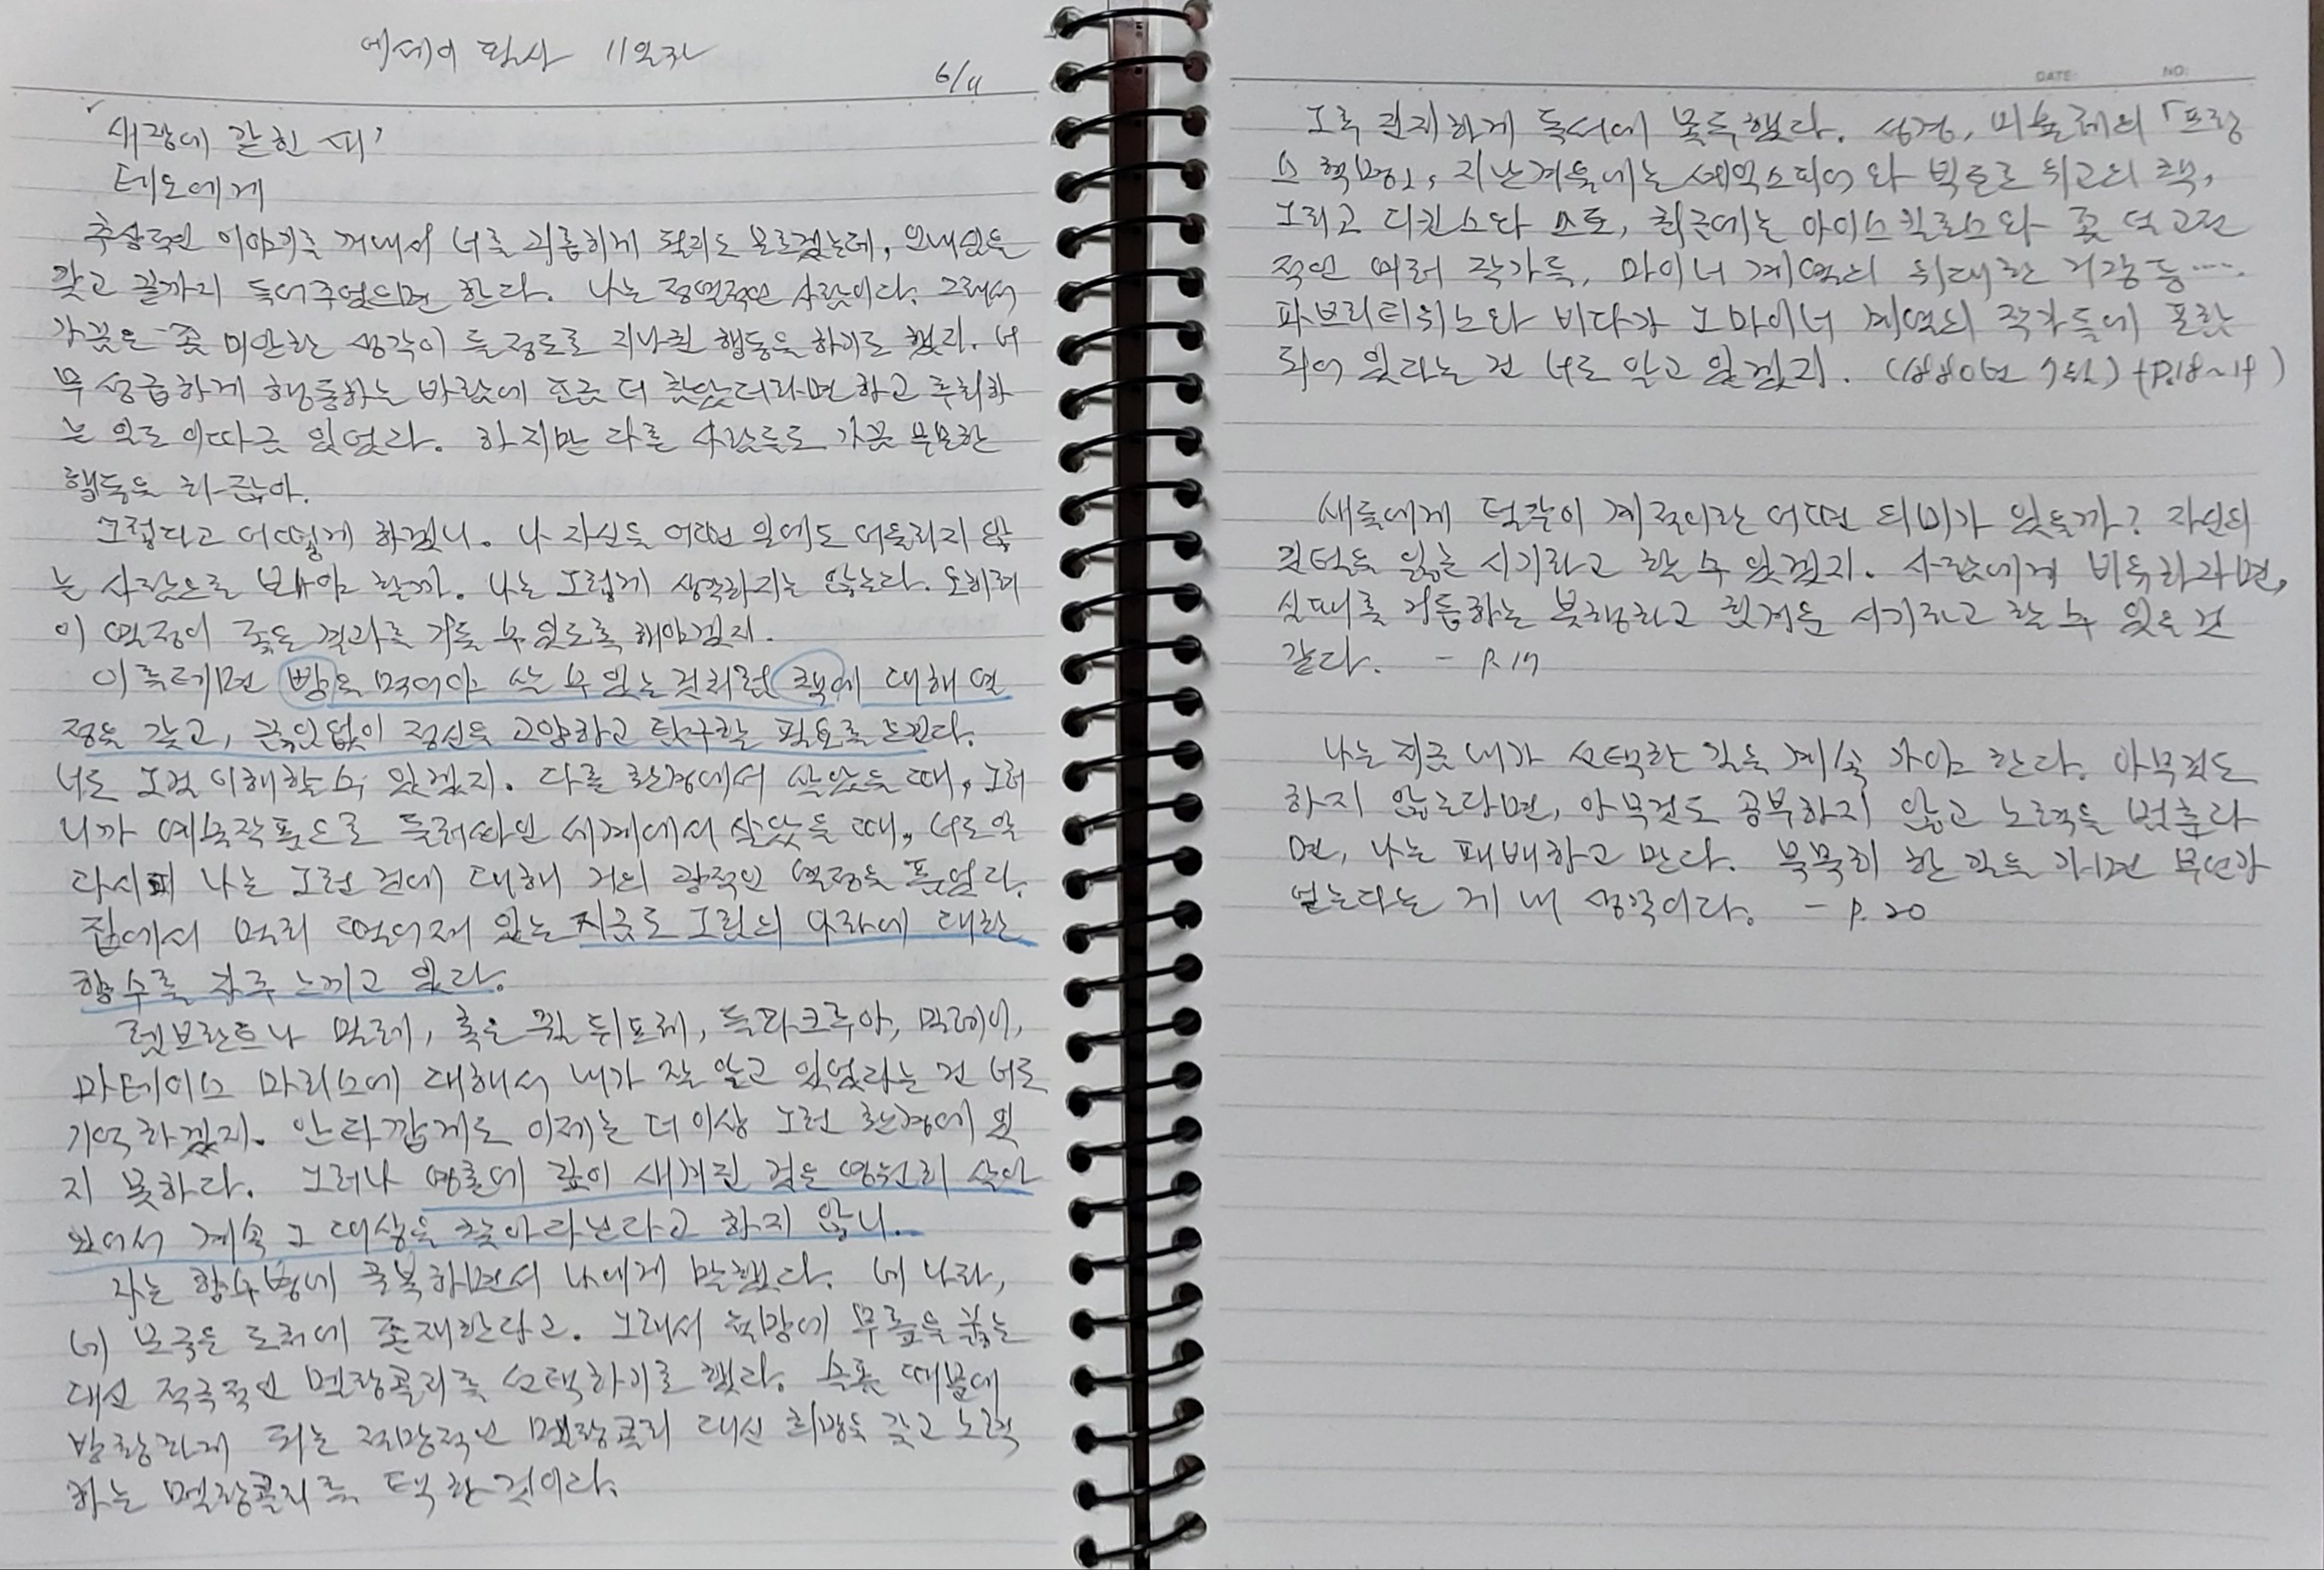 에세이 필사 11일차
6/11
'새장에 갇힌 새'
테오에게
추상적인 이야기를 꺼내서 너를 괴롭히게 될지도 모르겠는데, 인내심을
갖고 끝까지 들어주었으면 한다. 나는 정열적인 사람이다. 그래서
가끔은 좀 미안한 생각이 들 정도로 지나친 행동을 하기도 했지. 너
무 성급하게 행동하는 바람에 조금 더 참았더라면 하고 후회하
는 일도 이따금 있었다. 하지만 다른 사람들도 가끔 무모한
행동을 하잖아.
그렇다고 어떻게 하겠니. 나 자신을 어떤 일에도 어울리지 않
는 사람으로 봐야 할까. 나는 그렇게 생각하지는 않는다. 오히려
이 열정이 좋은 결과로 거둘 수 있도록 해야겠지.
이를테면 빵을 먹어야 살 수 있는 것처럼 책에 대해 열
정을 갖고, 끊임없이 정신을 고양하고 탐구할 필요를 느낀다.
너도 그걸 이해할 수 있겠지. 다른 환경에서 살았을 때, 그러
니까 예술작품으로 둘러싸인 세계에서 살았을 때, 너도 알
다시피 나는 그런 것에 대해 거의 광적인 열정을 품었다.
집에서 멀리 떨어져 있는 지금도 그림의 나라에 대한
향수를 자주 느끼고 있다.
렘브란트나 밀레, 혹은 쥘 뒤프레, 들라크루아, 밀레이,
마테이스 마리스에 대해서 내가 잘 알고 있었다는 건 너도
기억하겠지. 안타깝게도 이제는 더 이상 그런 환경에 있
지 못하다. 그러나 영혼에 깊이 새겨진 것은 영원히 살아
있어서 계속 그 대상을 찾아다닌다고 하지 않니.
나는 향수병에 굴복하면서 나에게 말했다. 네 나라,
네 모국은 도처에 존재한다고. 그래서 절망에 무릎을 꿇는
대신 적극적인 멜랑콜리를 선택하기로 했다. 슬픔 때문에
방황하게 되는 절망적인 멜랑콜리 대신 희망을 갖고 노력
하는 멜랑콜리를 택한 것이다.
그후 진지하게 독서에 몰두했다. 성경, 미슐레의 「프랑
스 혁명」, 지난겨울에는 셰익스피어와 빅토르 위고의 책,
그리고 디킨스와 스토, 최근에는 아이스킬로스와 좀 덜 고전
적인 여러 작가들, 마이너 계열의 위대한 거장들....
파브리티위스와 비다가 그 마이너 계열의 작가들에 포함
되어 있다는 건 너도 알고 있겠지. (1880년 7월) (P.18~19)
새들에게 털갈이 계절이란 어떤 의미가 있을까? 자신의
깃털을 잃는 시기라고 할 수 있겠지. 사람에게 비유하자면,
실패를 거듭하는 불행하고 힘겨운 시기라고 할 수 있을 것
같다. - P.17
나는 지금 내가 선택한 길을 계속 가야 한다. 아무것도
하지 않는다면, 아무것도 공부하지 않고 노력을 멈춘다
면, 나는 패배하고 만다. 묵묵히 한 길을 가면 무언가
얻는다는 게 내 생각이다. - P.20